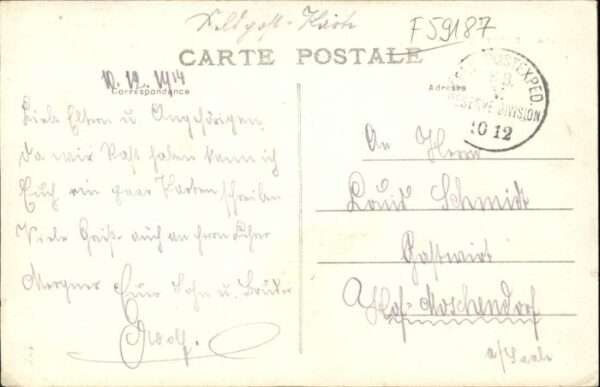 Feldpost-Karte
F59187
CARTE POSTALE
10.12.1914
Correspondance
Adresse
POSTEXPED.
RESERVE DIVISION
10 12
Liebe Eltern u. Angehörigen
Da wir Rast haben kann ich
Euch ein paar Karten schreiben
Viele Grüße auch an
Euer Sohn u. Bruder
Adolf.
An Herrn
Louis Schmidt
Gastwirt
Hof-Moschendorf
a/Saale